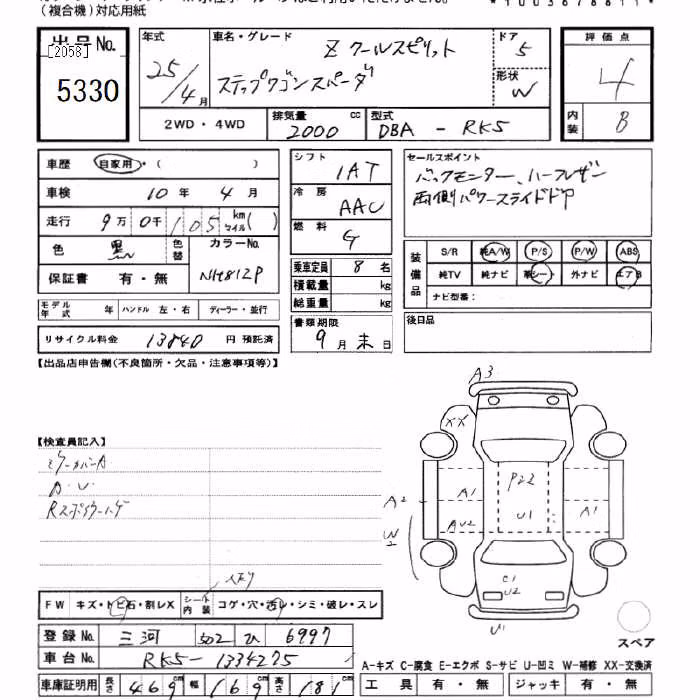 (複合機)対応用紙
*1003678811*
出品No.
[2058]
5330
年式
25/4月
車名・グレード
Z クールスピリット
ステップワゴンスパーダ
ドア
5
形状
W
評価点
4
内装
B
2WD・4WD
排気量
2000 cc
型式
DBA - RK5
車歴 自家用・( )
車検 10年 4月
走行 9万 0千 105 km マイル( )
色 黒 色替
カラーNo.
NH812P
保証書 有・無
モデル年式 年 ハンドル 左・右 ディーラー・並行
リサイクル料金 13840 円 預託済
シフト
IAT
冷房
AAC
燃料
G
乗車定員 8 名
積載量 kg
総重量 kg
書類期限
9月末日
セールスポイント
バックモニター、ハーフレザー
両側パワースライドドア
装備品
S/R 純A/W P/S P/W ABS
純TV 純ナビ 革シート 外ナビ エアB
ナビ型番:
後日品
【出品店申告欄(不良箇所・欠品・注意事項等)】
【検査員記入】
ミラーカバーA
A・U
A3
XX
P22
A1
U1
A1
A2
AU2
W2
C1
U2
U1
FW キズ・トビ石・割レX シート内装 コゲ・穴・汚レ・シミ・破レ・スレ
登録No. 三河 502 ひ 6997
車台No. RK5-1334275
車庫証明用 長さ 469cm 幅 169cm 高さ 181cm
スペア
A-キズ C-腐食 E-エクボ S-サビ U-凹ミ W-補修 XX-交換済
工具 有・無 ジャッキ 有・無